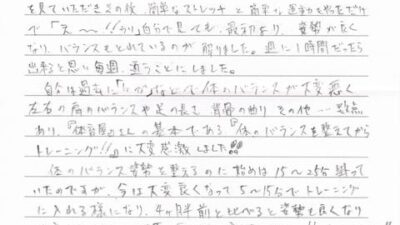 を見ていただきその後 簡単なストレッチと簡単な運動をやっただけ
で「え〜!!」自分で見ても、最初より、姿勢が良く
なり、バランスもとれているのが解りました。週に1時間だったら
出来ると思い毎週通うことにしました。
自分は過去に「などで体のバランスが大変悪く
左右の肩のバランスや足の長さ 背骨の曲り その他…
あり、『体育屋さんの基本である『体のバランスを整えてから
トレーニング!!』に大変感激しました!!
体のバランス姿勢を整えるのに始めは15〜25分掛って
いたのですが、今は大変良くなって5〜15分でトレーニング
に入れる様になり、4ヶ月半前と比べると姿勢も良くなり